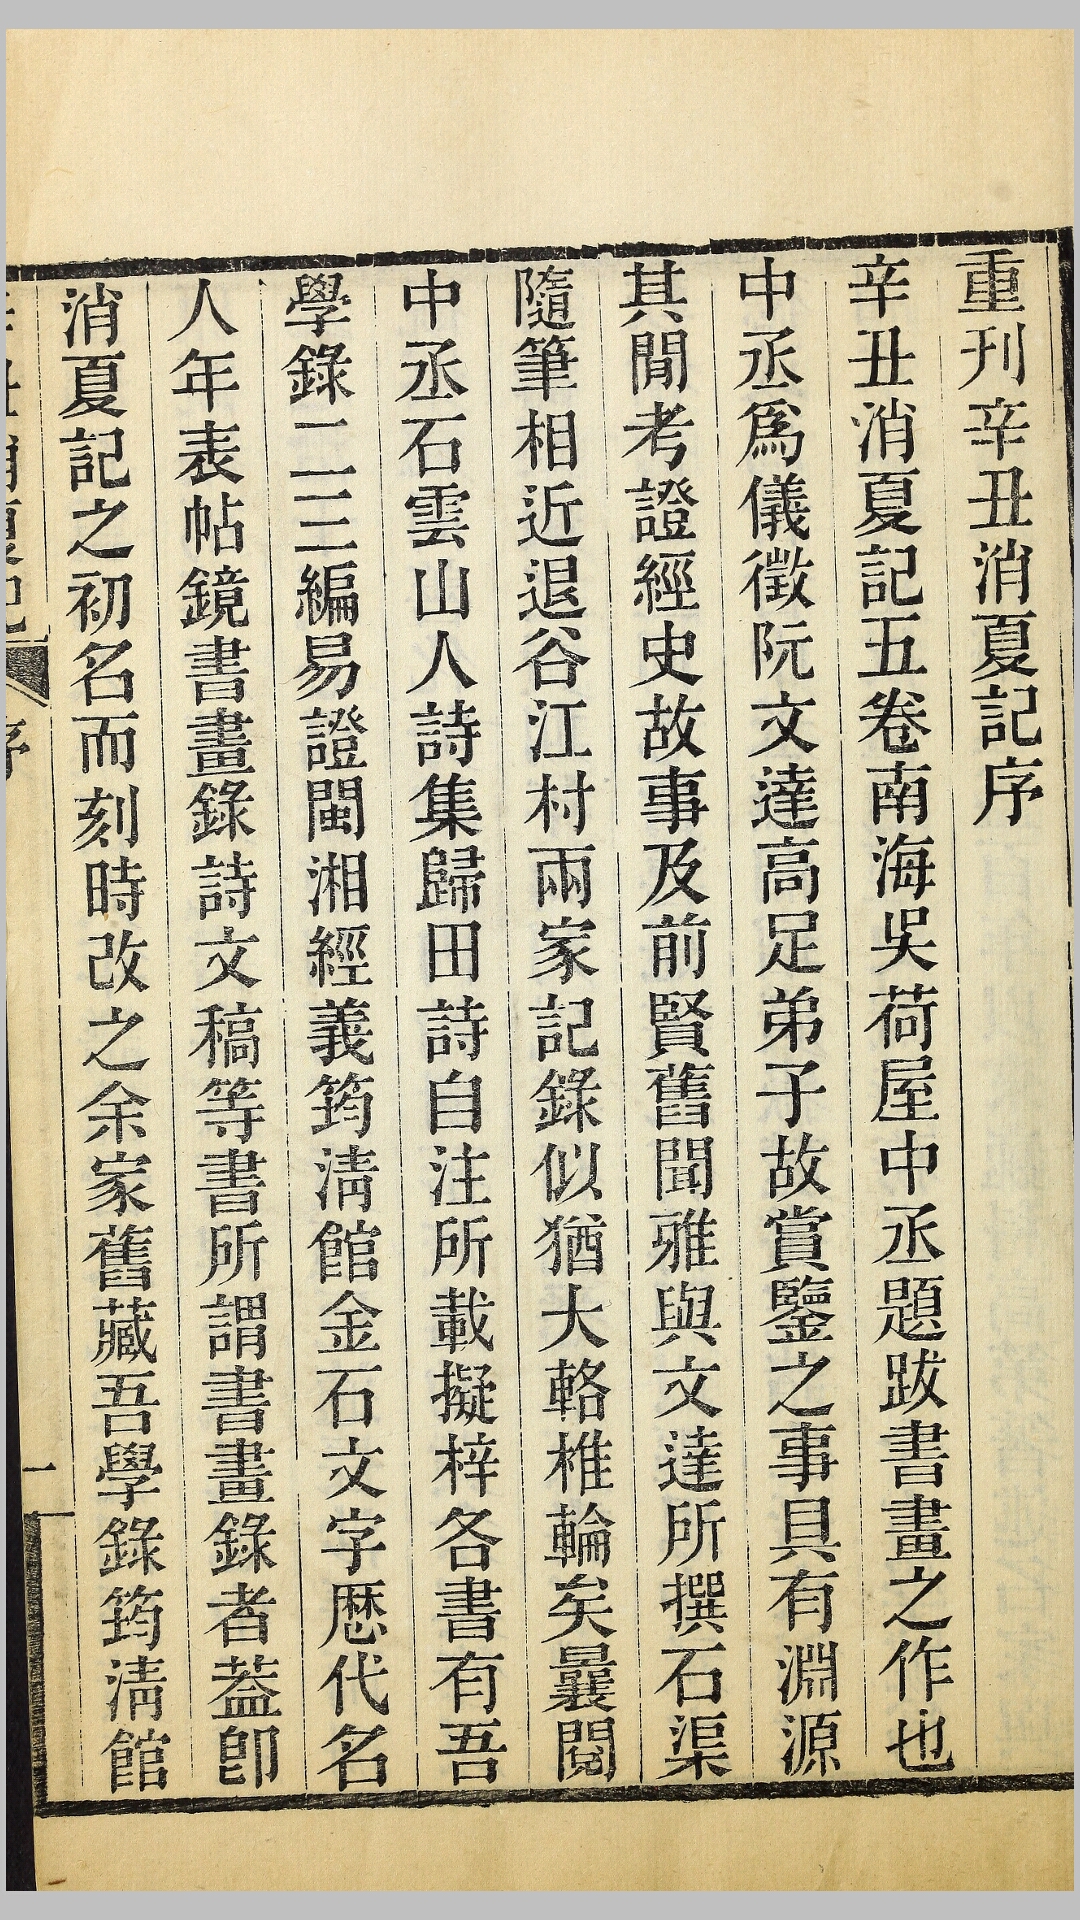 重刊辛丑消夏記序
辛丑消夏記五卷南海吳荷屋中丞題跋書畫之作也
中丞爲儀徵阮文達高足弟子故賞鑒之事具有淵源
其閒考證經史故事及前賢舊聞雅與文達所撰石渠
隨筆相近退谷江村兩家記錄似猶大輅椎輪矣曩閱
中丞石雲山人詩集歸田詩自注所載擬梓各書有吾
學錄二三編易證閩湘經義筠清館金石文字歷代名
人年表帖鏡書畫錄詩文稿等書所謂書畫錄者葢卽
消夏記之初名而刻時改之余家舊藏吾學錄筠清館
序
一